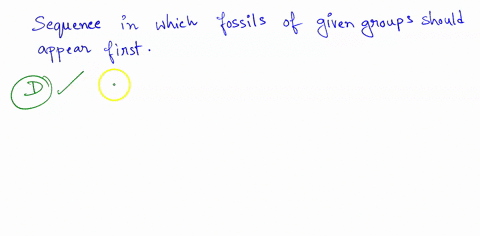 Sequence in which fossils of given groups should
appear first.
D